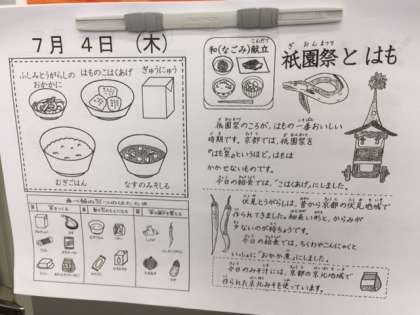 7月 4日 (木)
ふしみとうがらしの
おかかに
はものこはくあげ
ぎゅうにゅう
むぎごはん
なすのみそしる
和(なごみ)献立
こんだて
祇園祭とはも
ぎおんまつり
祇園祭のころが、はもの一番おいしい
時期です。京都では、祇園祭を
「はも祭」というほど、はもは
かかせないものです。
今日の給食では、「こはくあげ」にしました。
伏見とうがらしは、昔から京都の伏見地域で
作られてきました。細長い形と、からみが
ないのが特ちょうです。
今日の給食では、ちくわやこんにゃくと
いっしょに「おかか煮」にしました。
今日のみそ汁には、京都の京北地域で
作られた京北みそを使っています。